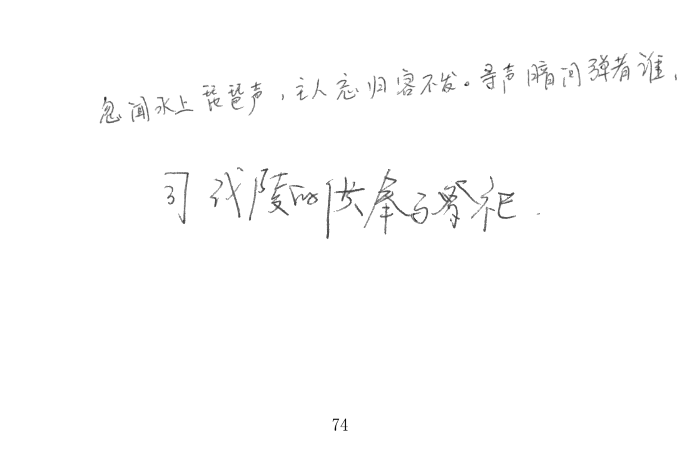 忽闻水上琵琶声，主人忘归客不发。寻声暗问弹者谁，
引 代陵的供奉与祭祀.
74